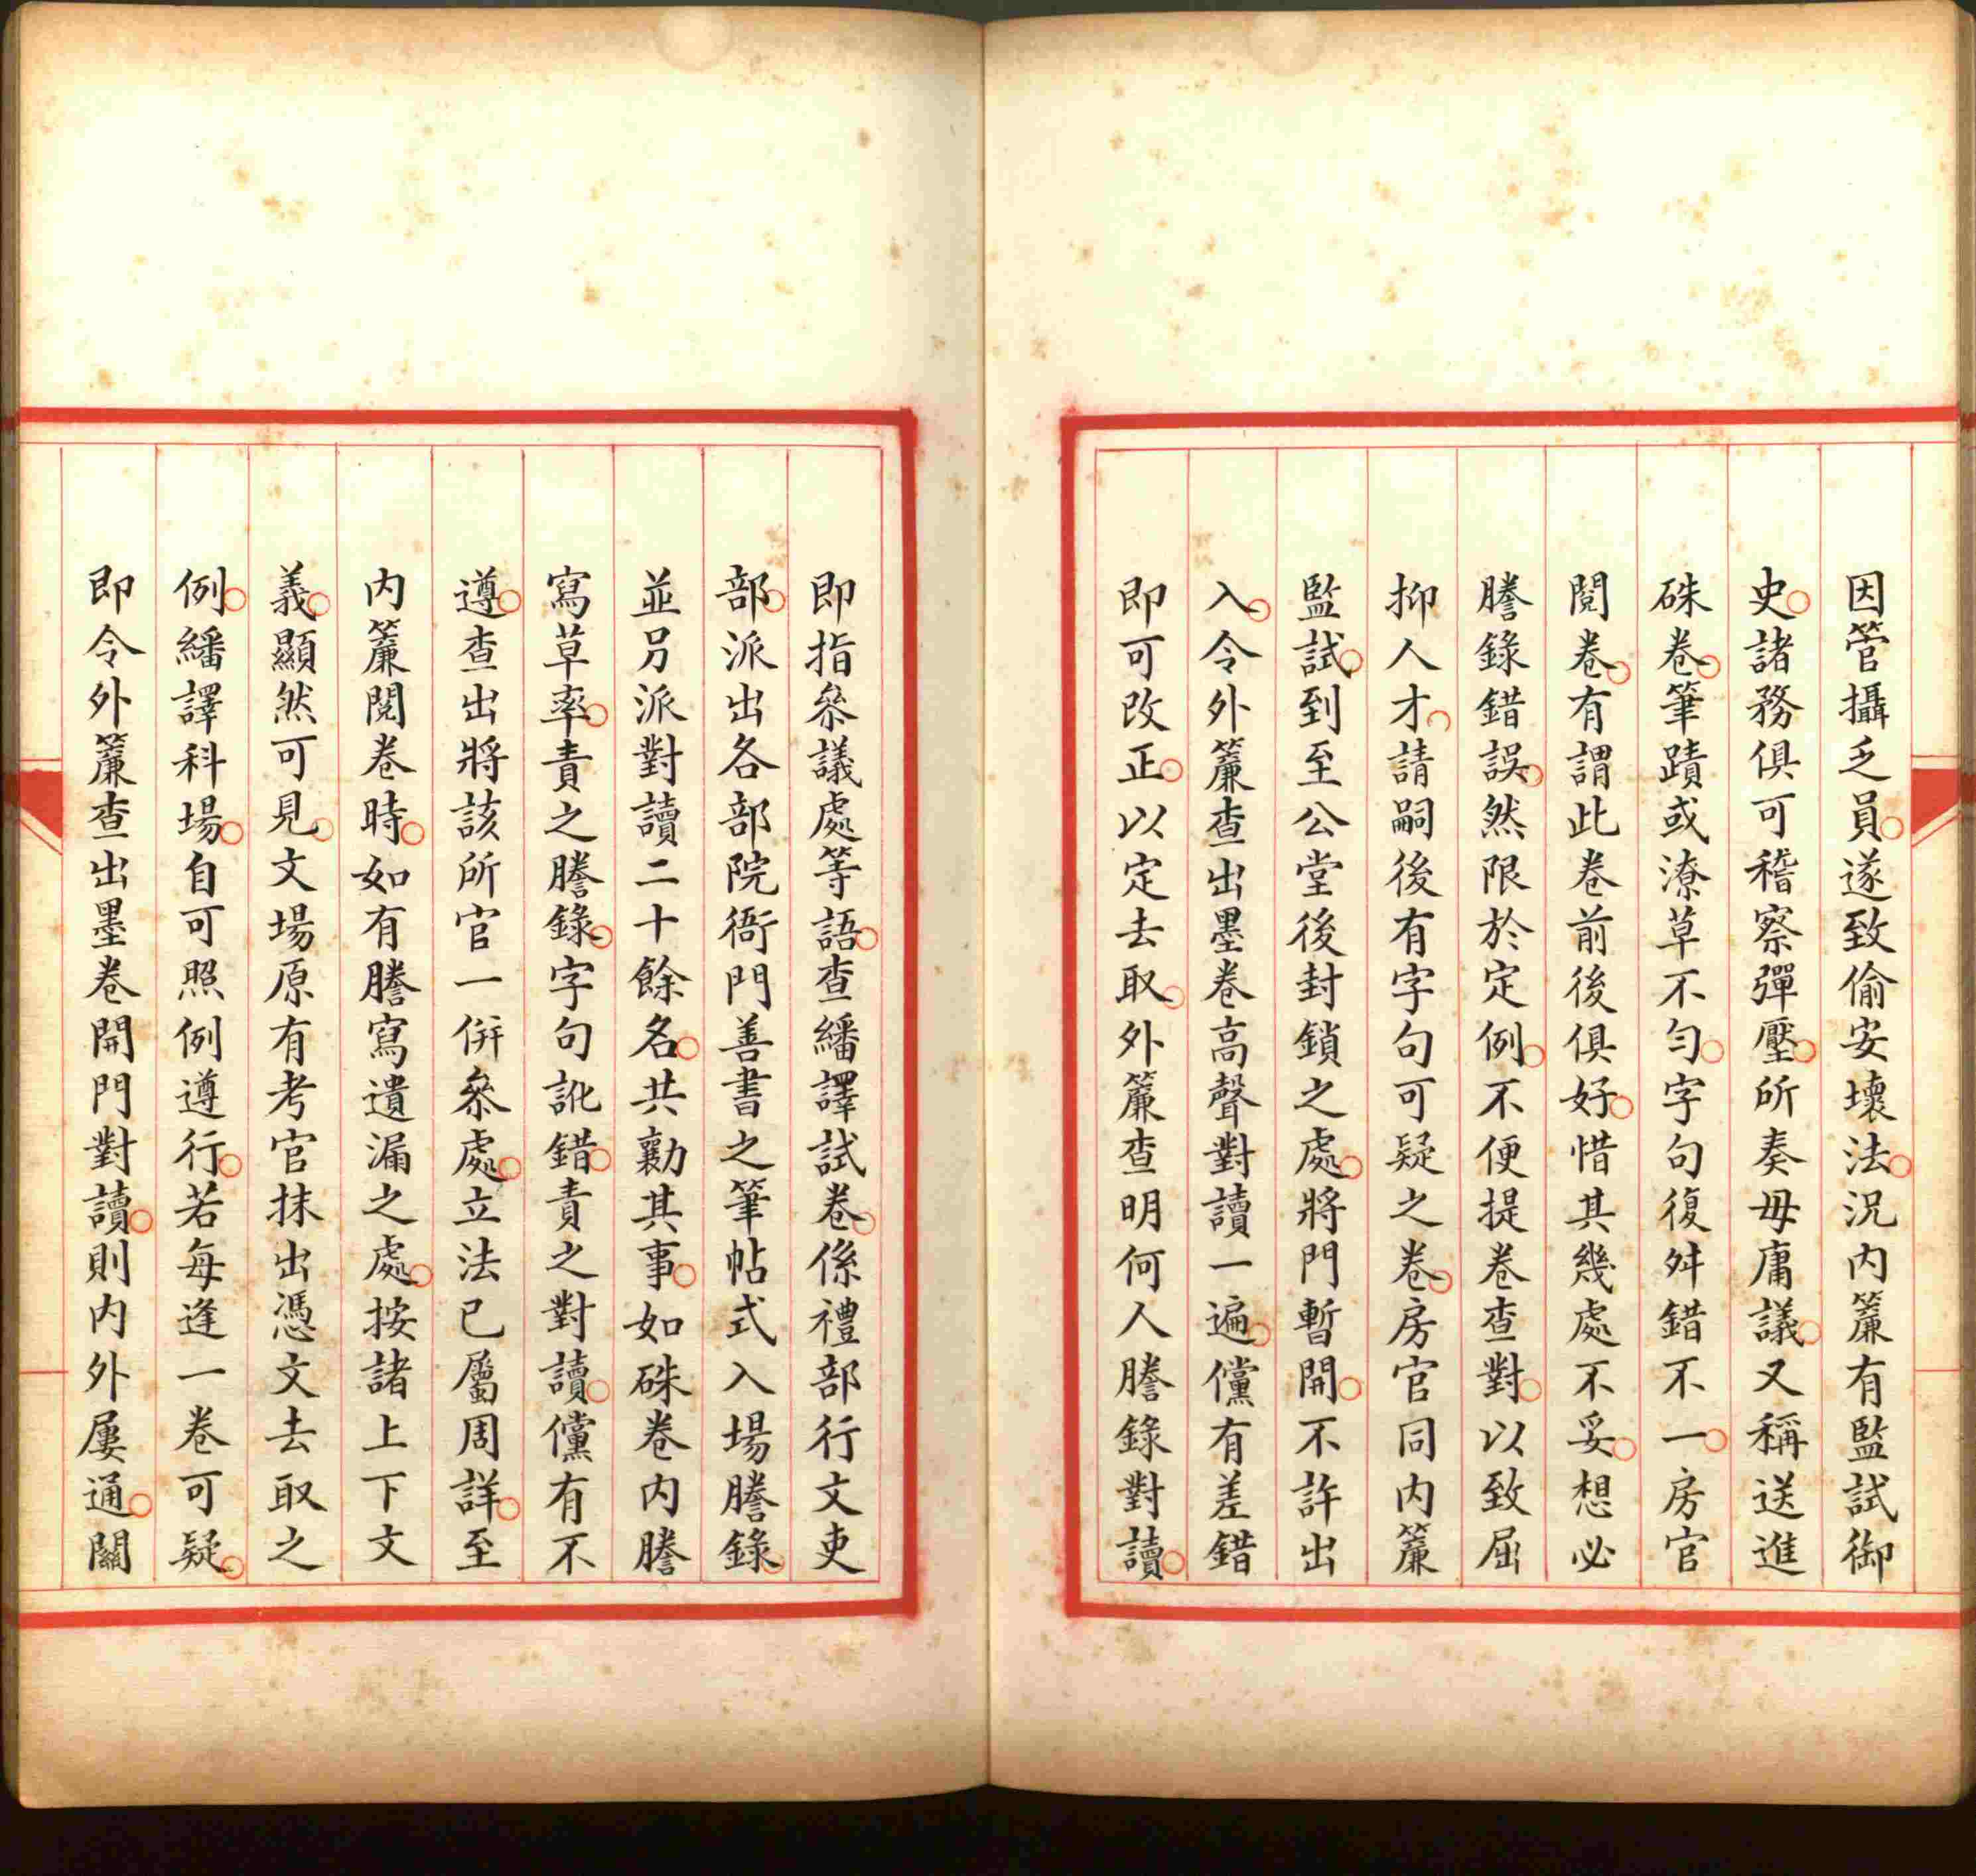 因管攝乏員○遂致偷安壞法○況内簾有監試御
史○諸務俱可稽察彈壓○所奏毋庸議○又稱送進
硃卷○筆蹟或潦草不勻○字句復舛錯不一○房官
閱卷○有謂此卷前後俱好○惜其幾處不妥○想必
謄錄錯誤○然限於定例○不便提卷查對○以致屈
抑人才○請嗣後有字句可疑之卷○房官同内簾
監試○到至公堂後封鎖之處○將門暫開○不許出
入○令外簾查出墨卷高聲對讀一遍○儻有差錯
即可改正○以定去取○外簾查明何人謄錄對讀○
即指叅議處等語○查繙譯試卷○係禮部行文吏
部○派出各部院衙門善書之筆帖式入場謄錄○
並另派對讀二十餘名○共勷其事○如硃卷内謄
寫草率○責之謄錄○字句訛錯○責之對讀○儻有不
遵○查出將該所官一併叅處○立法已屬周詳○至
内簾閱卷時○如有謄寫遺漏之處○按諸上下文
義○顯然可見○文場原有考官抹出憑文去取之
例○繙譯科場○自可照例遵行○若每逢一卷可疑○
即令外簾查出墨卷開門對讀○則内外屢通○關